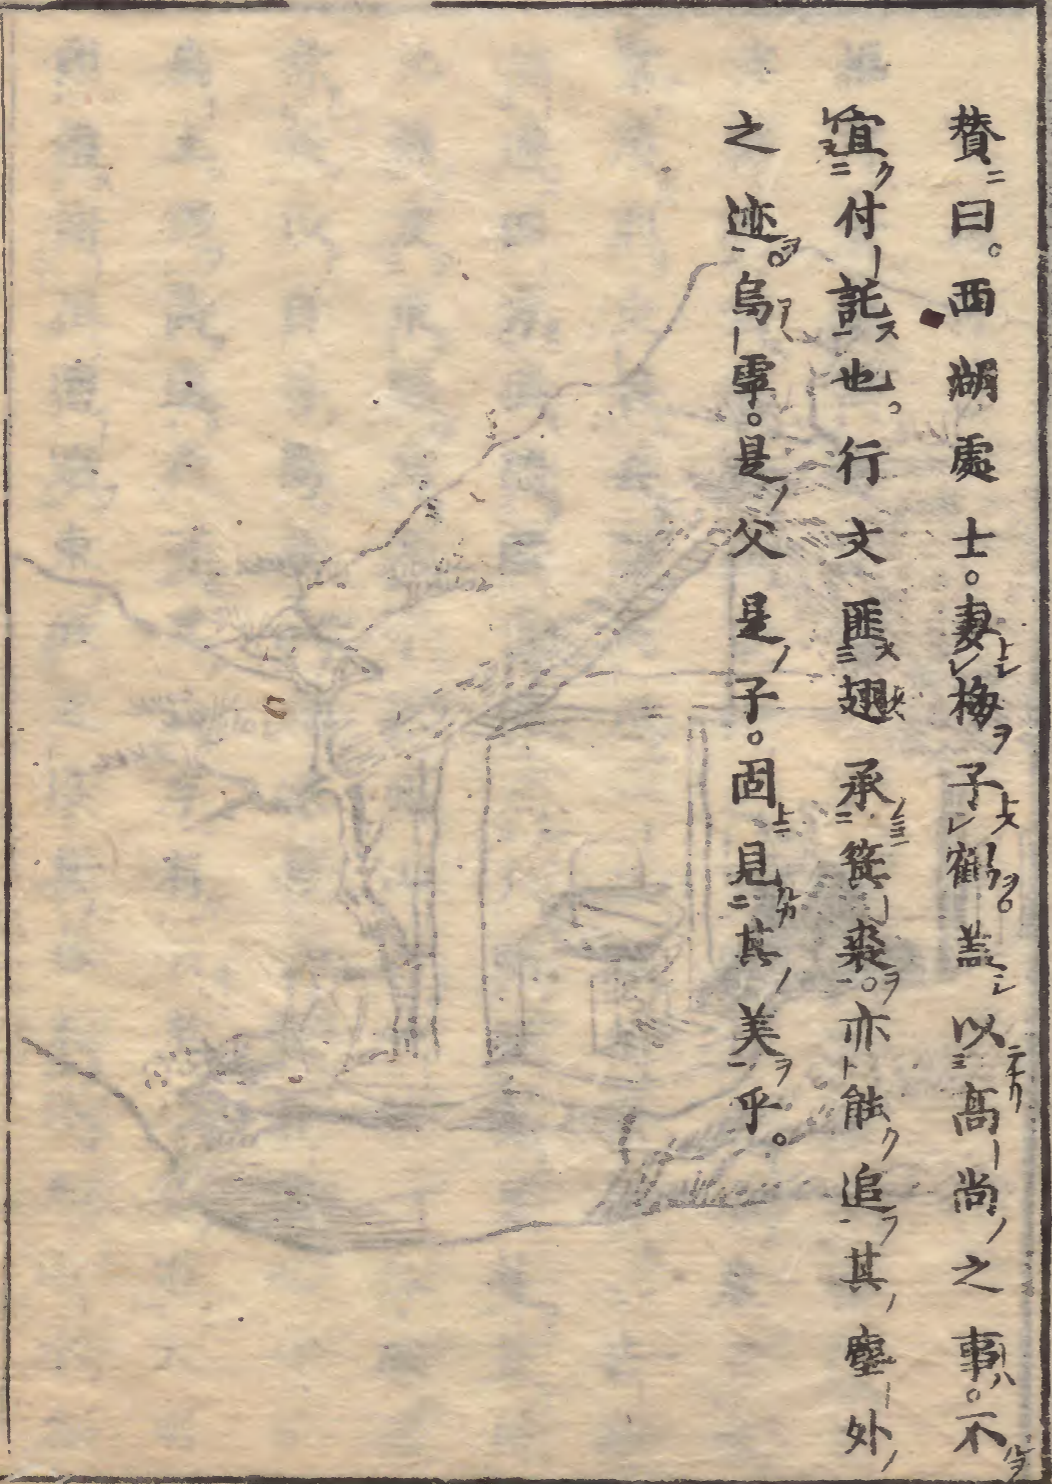 賛曰。西湖處士。妻梅子鶴。蓋以高尚之事。不
宜付託也。行文匪翅承箕裘。亦能追其塵外
之迹。烏虖。是父是子。固見其美乎。